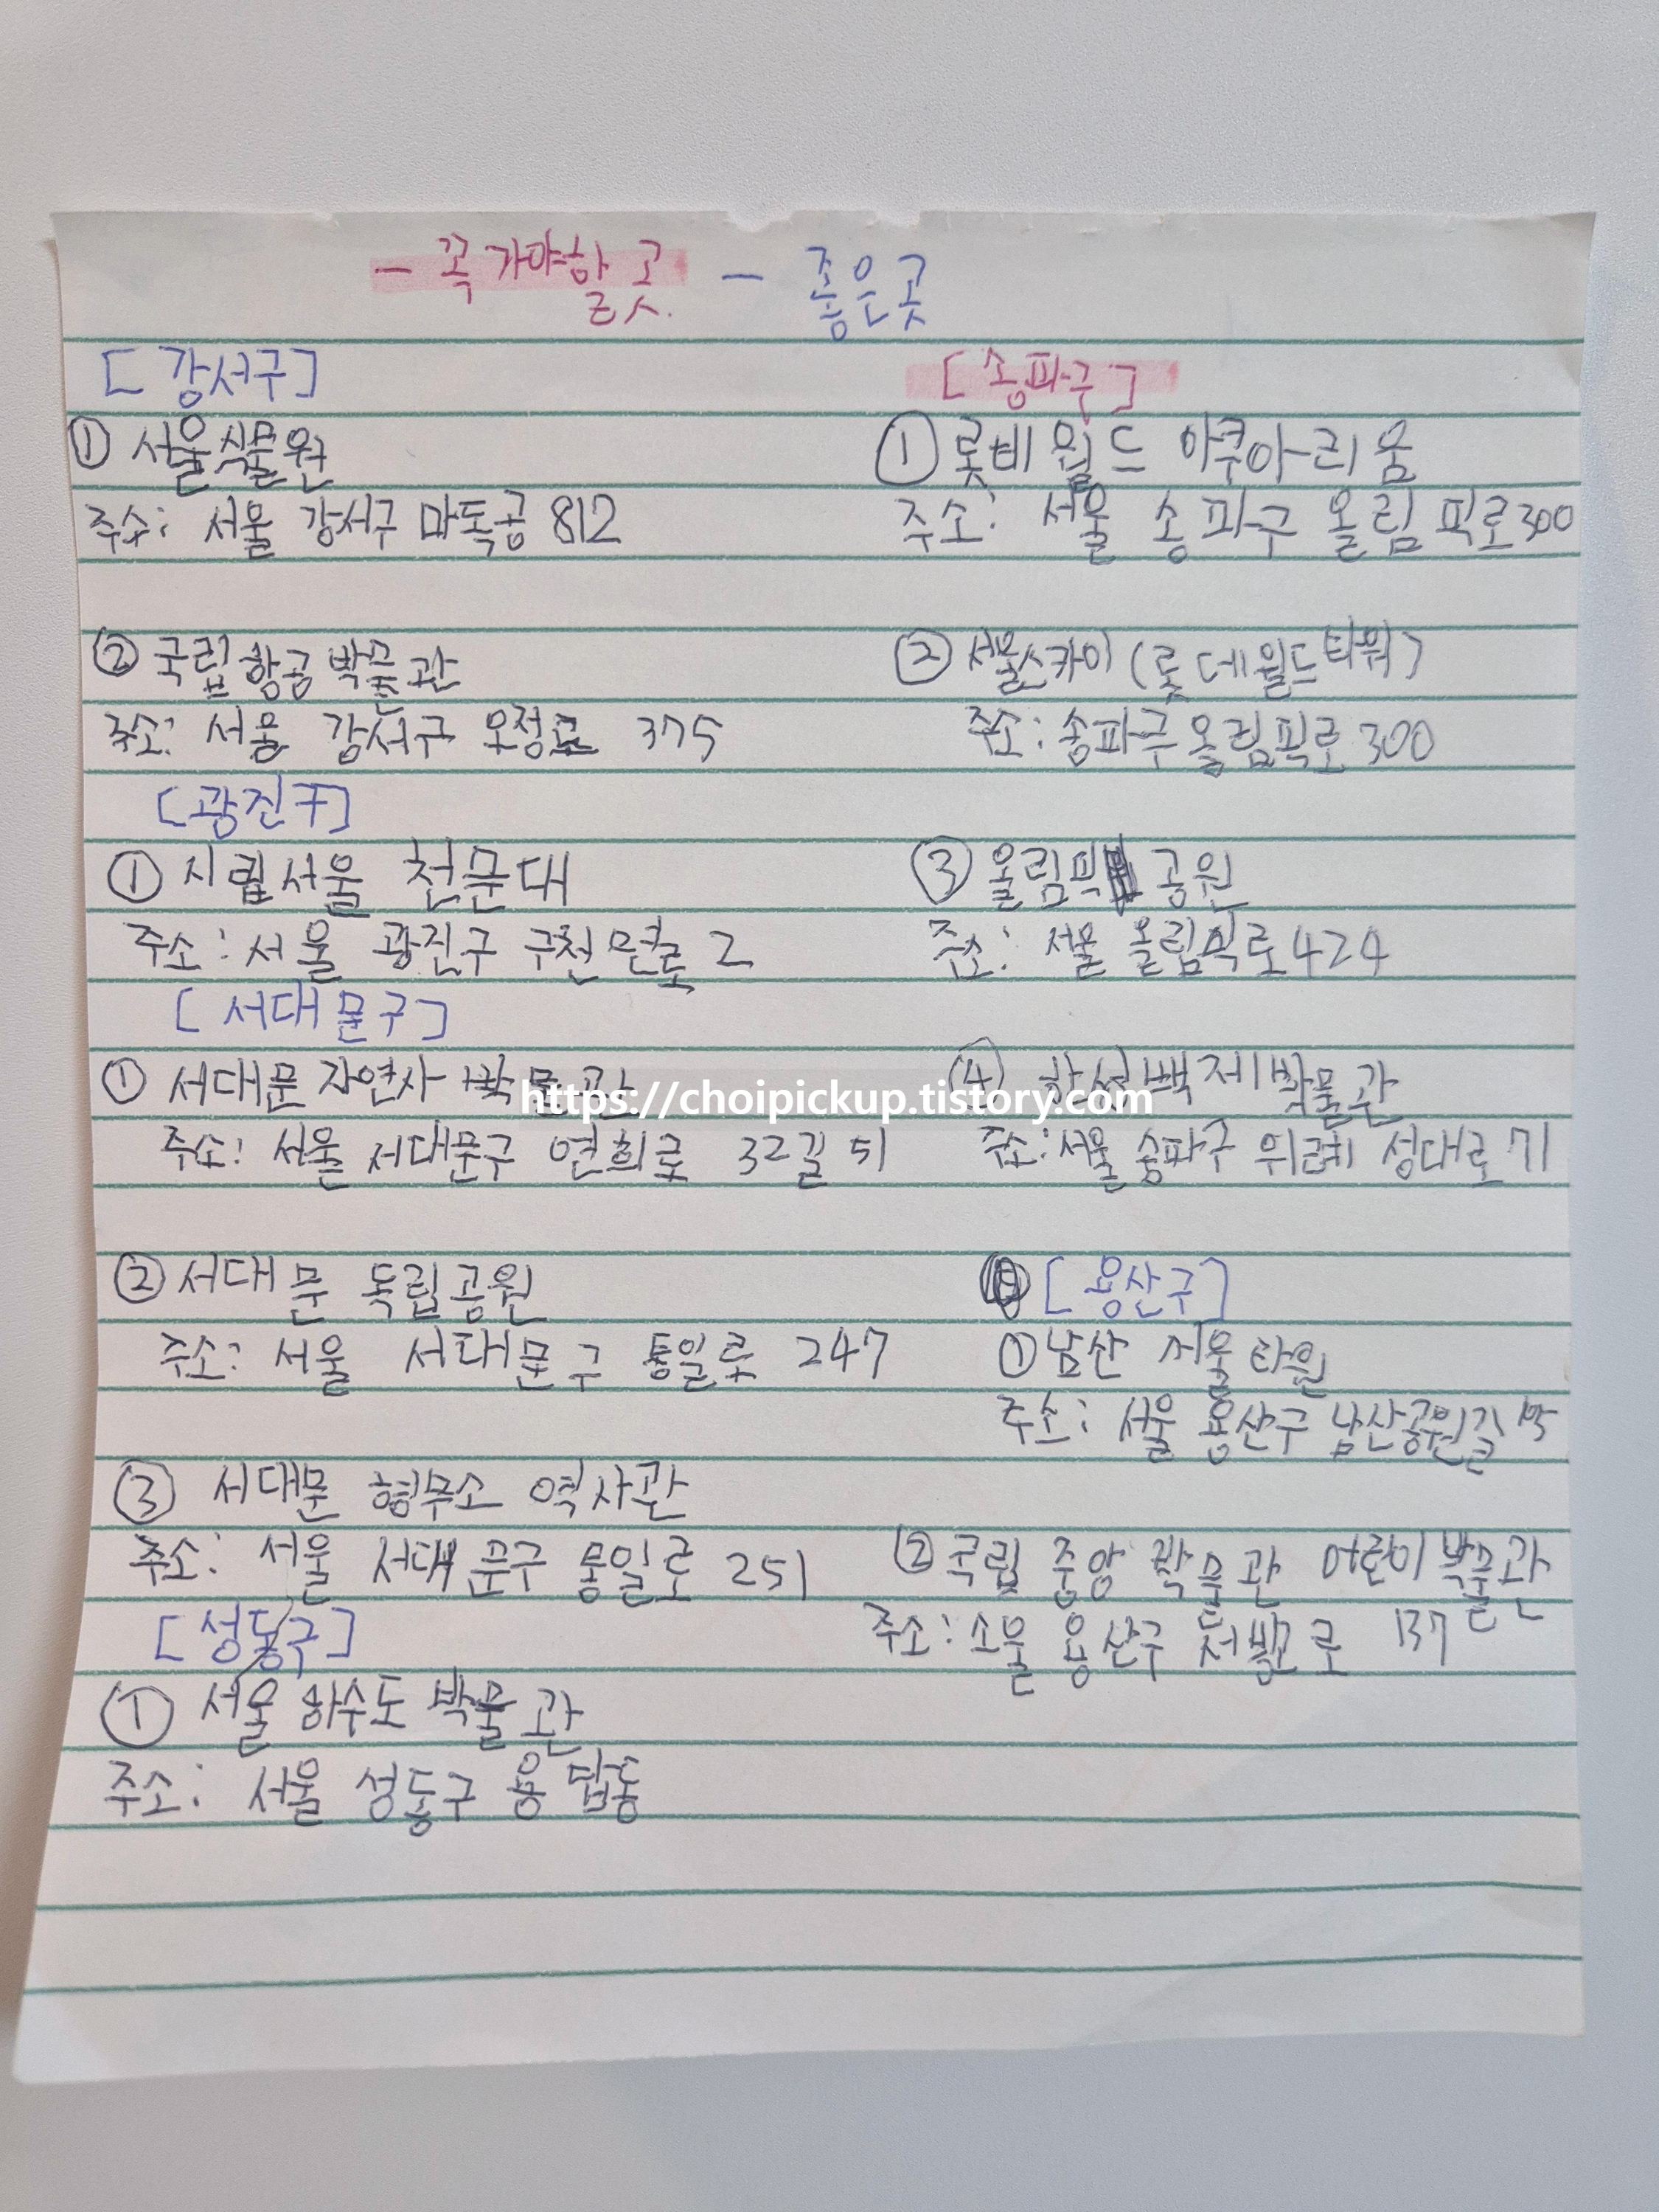 - 꼭 가야할 곳 - 좋은곳
[강서구]
① 서울식물원
주소: 서울 강서구 마톡공 812
② 국립항공박물관
주소: 서울 강서구 오정로 375
[광진구]
① 시립서울 천문대
주소: 서울 광진구 구천면로 2
[서대문구]
① 서대문 자연사 박물관
주소: 서울 서대문구 연희로 32길 51
② 서대문 독립공원
주소: 서울 서대문구 통일로 247
③ 서대문 형무소 역사관
주소: 서울 서대문구 통일로 251
[성동구]
① 서울 하수도 박물관
주소: 서울 성동구 용답동
[송파구]
① 롯데월드 아쿠아리움
주소: 서울 송파구 올림픽로300
② 서울스카이 (롯데월드타워)
주소: 송파구 올림픽로 300
③ 올림픽 공원
주소: 서울 올림픽로 424
④ 한성백제박물관
주소: 서울 송파구 위례성대로 71
[용산구]
① 남산 서울 타워
주소: 서울 용산구 남산공원길
② 국립 중앙 박물관 어린이 박물관
주소: 소울 용산구 서빙고로 137
https://choipickup.tistory.com